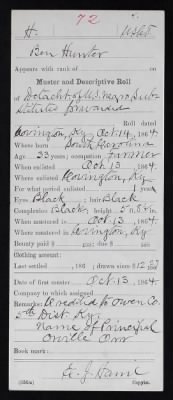 72
H. USCT
Ben Hunter
Appears with rank of
Muster and Descriptive Roll
of Detacht of U.S. Negro Sub-
stitutes forwarded
Roll dated
Covington, Ky. Oct 14, 1864.
Where born South Carolina
Age 33 years; occupation Farmer
When enlisted Oct 13, 1864.
Where enlisted Covington, Ky
For what period enlisted 1 years.
Eyes Black; hair Black
Complexion Black; height 5 ft. 8 in.
When mustered in Oct 13, 1864.
Where mustered in Covington, Ky
Bounty paid $ ; due $
Clothing account:
Last settled , 186 ; drawn since $
Date of first muster Oct 13, 1864.
Company to which assigned
Remarks: Accredited to Owen Co.
5th Dist Ky.
Name of Principal
Orville Orr
Book mark:
Copyist.